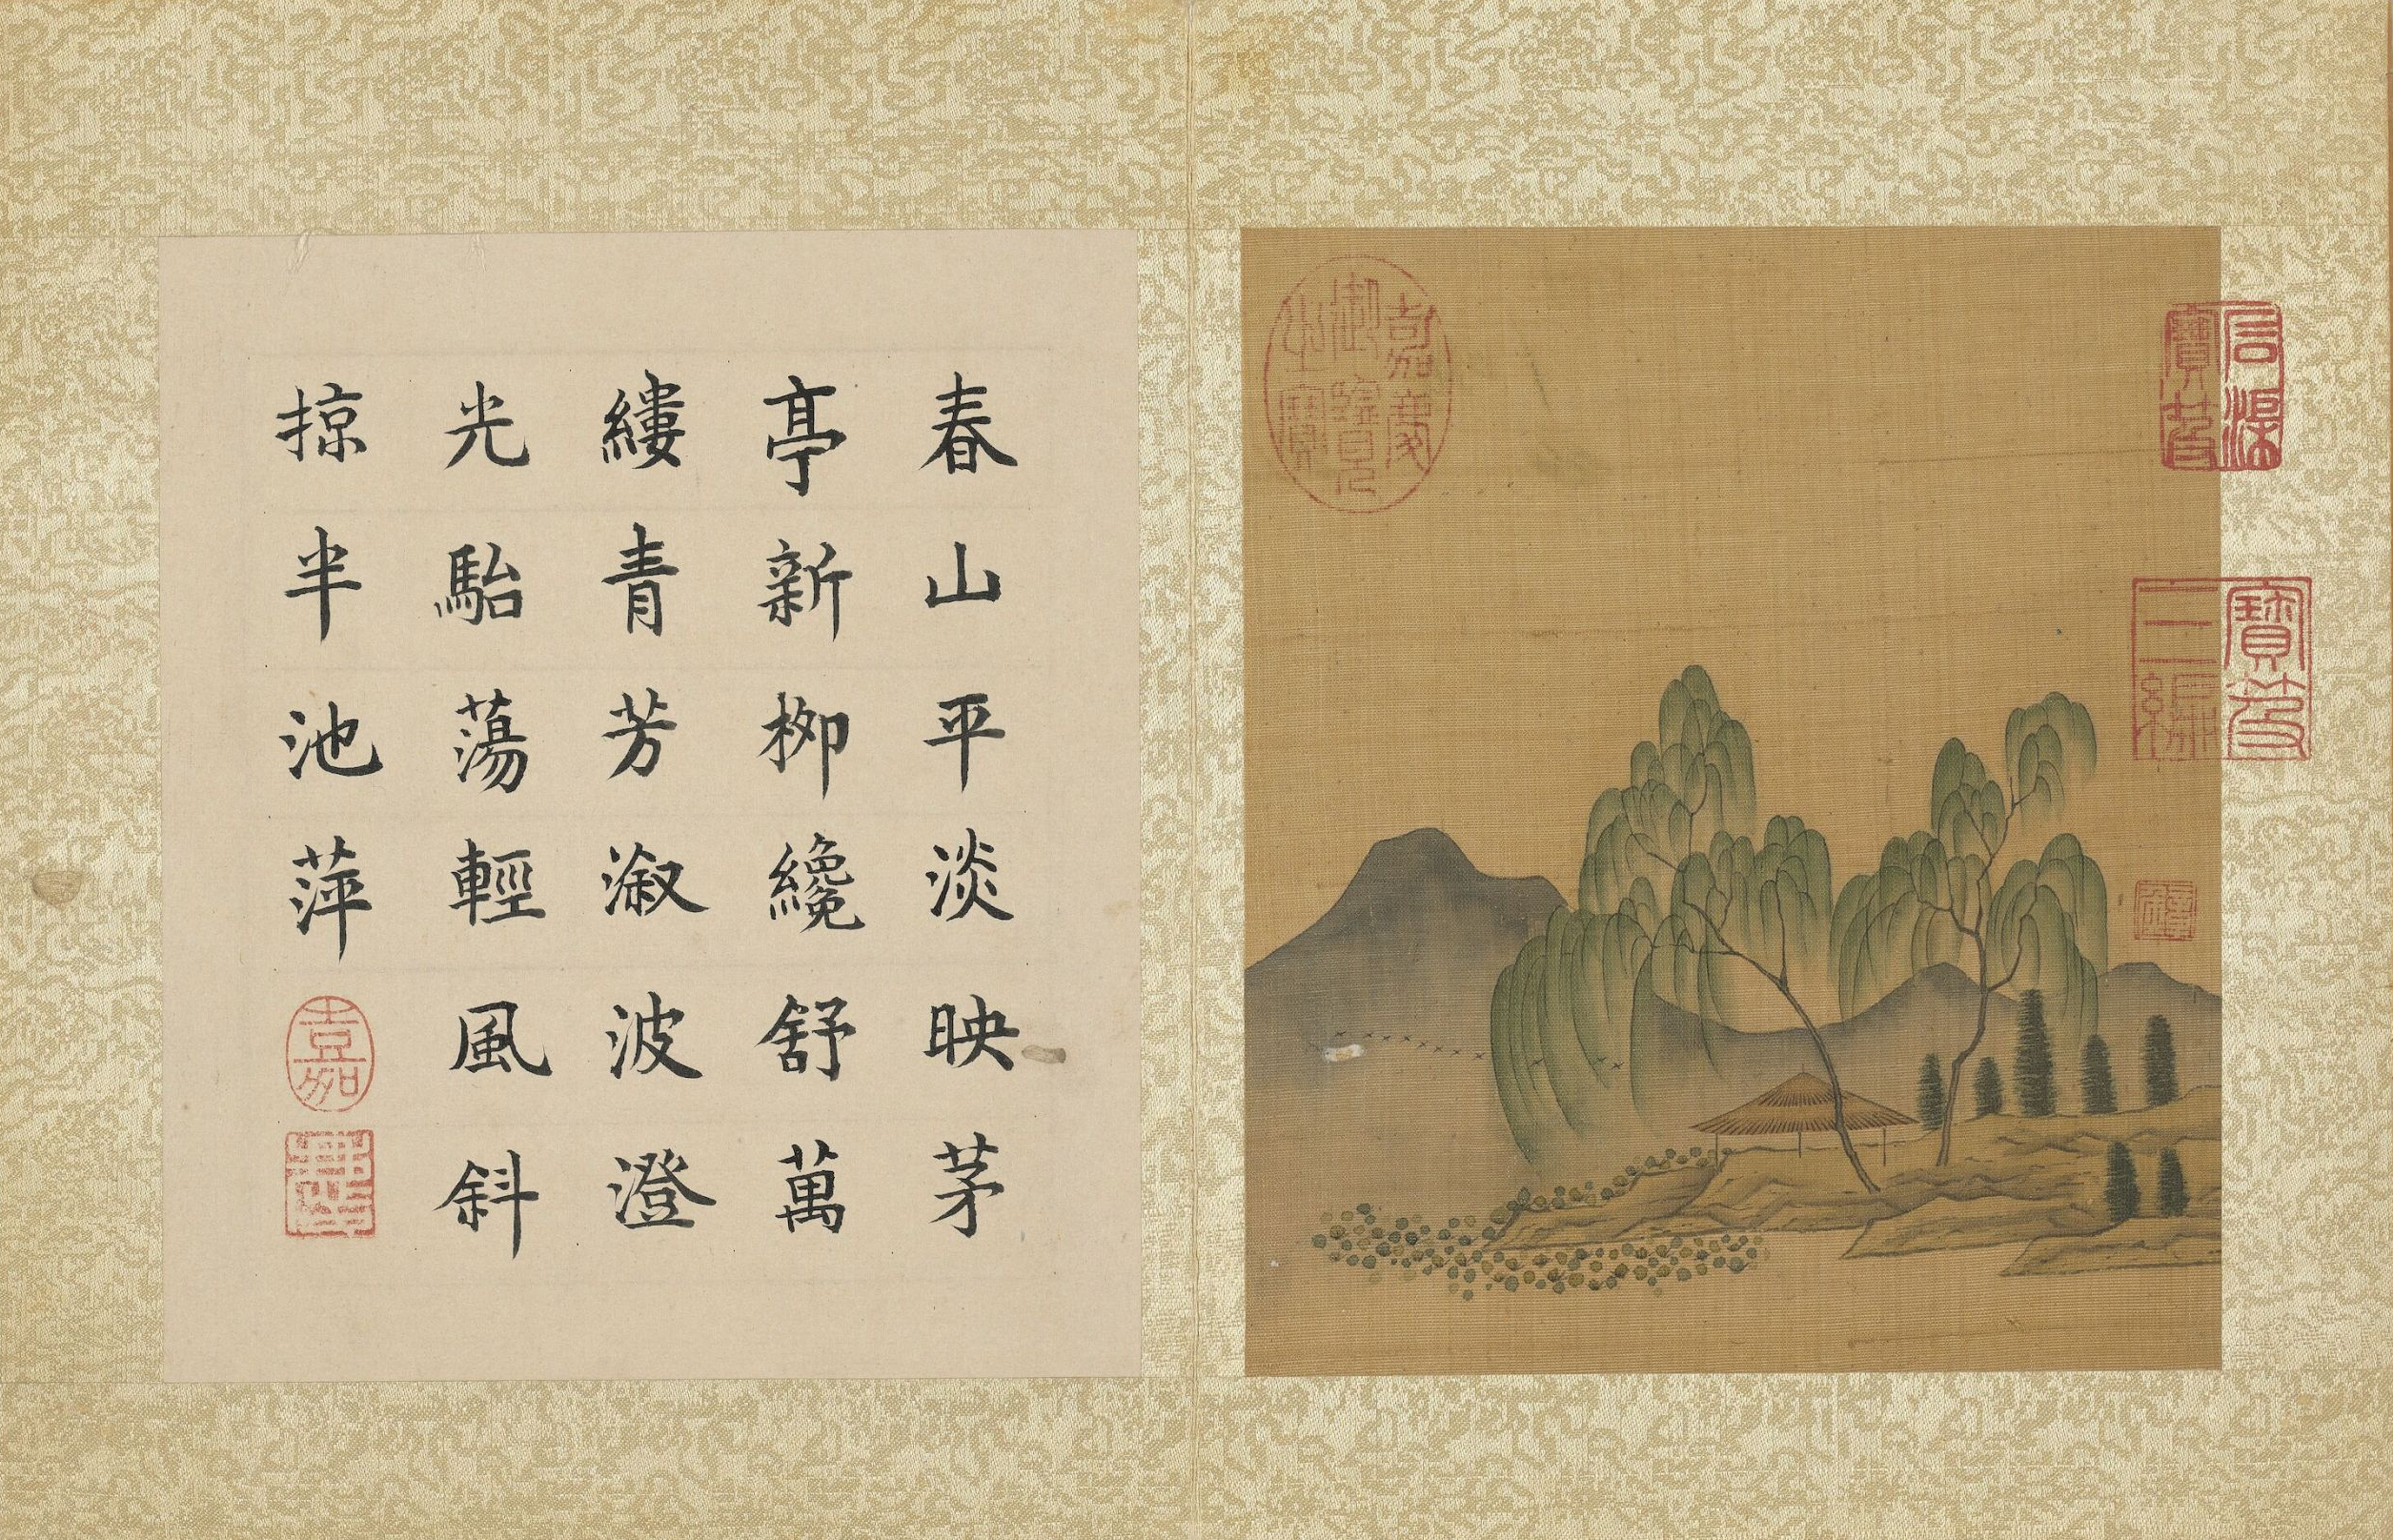 石渠寶笈
寶笈三編
嘉慶御覽之寶
春山平淡映茅
亭新栁纔舒萬
縷青芳溆波澄
光駘蕩輕風斜
掠半池萍
嘉